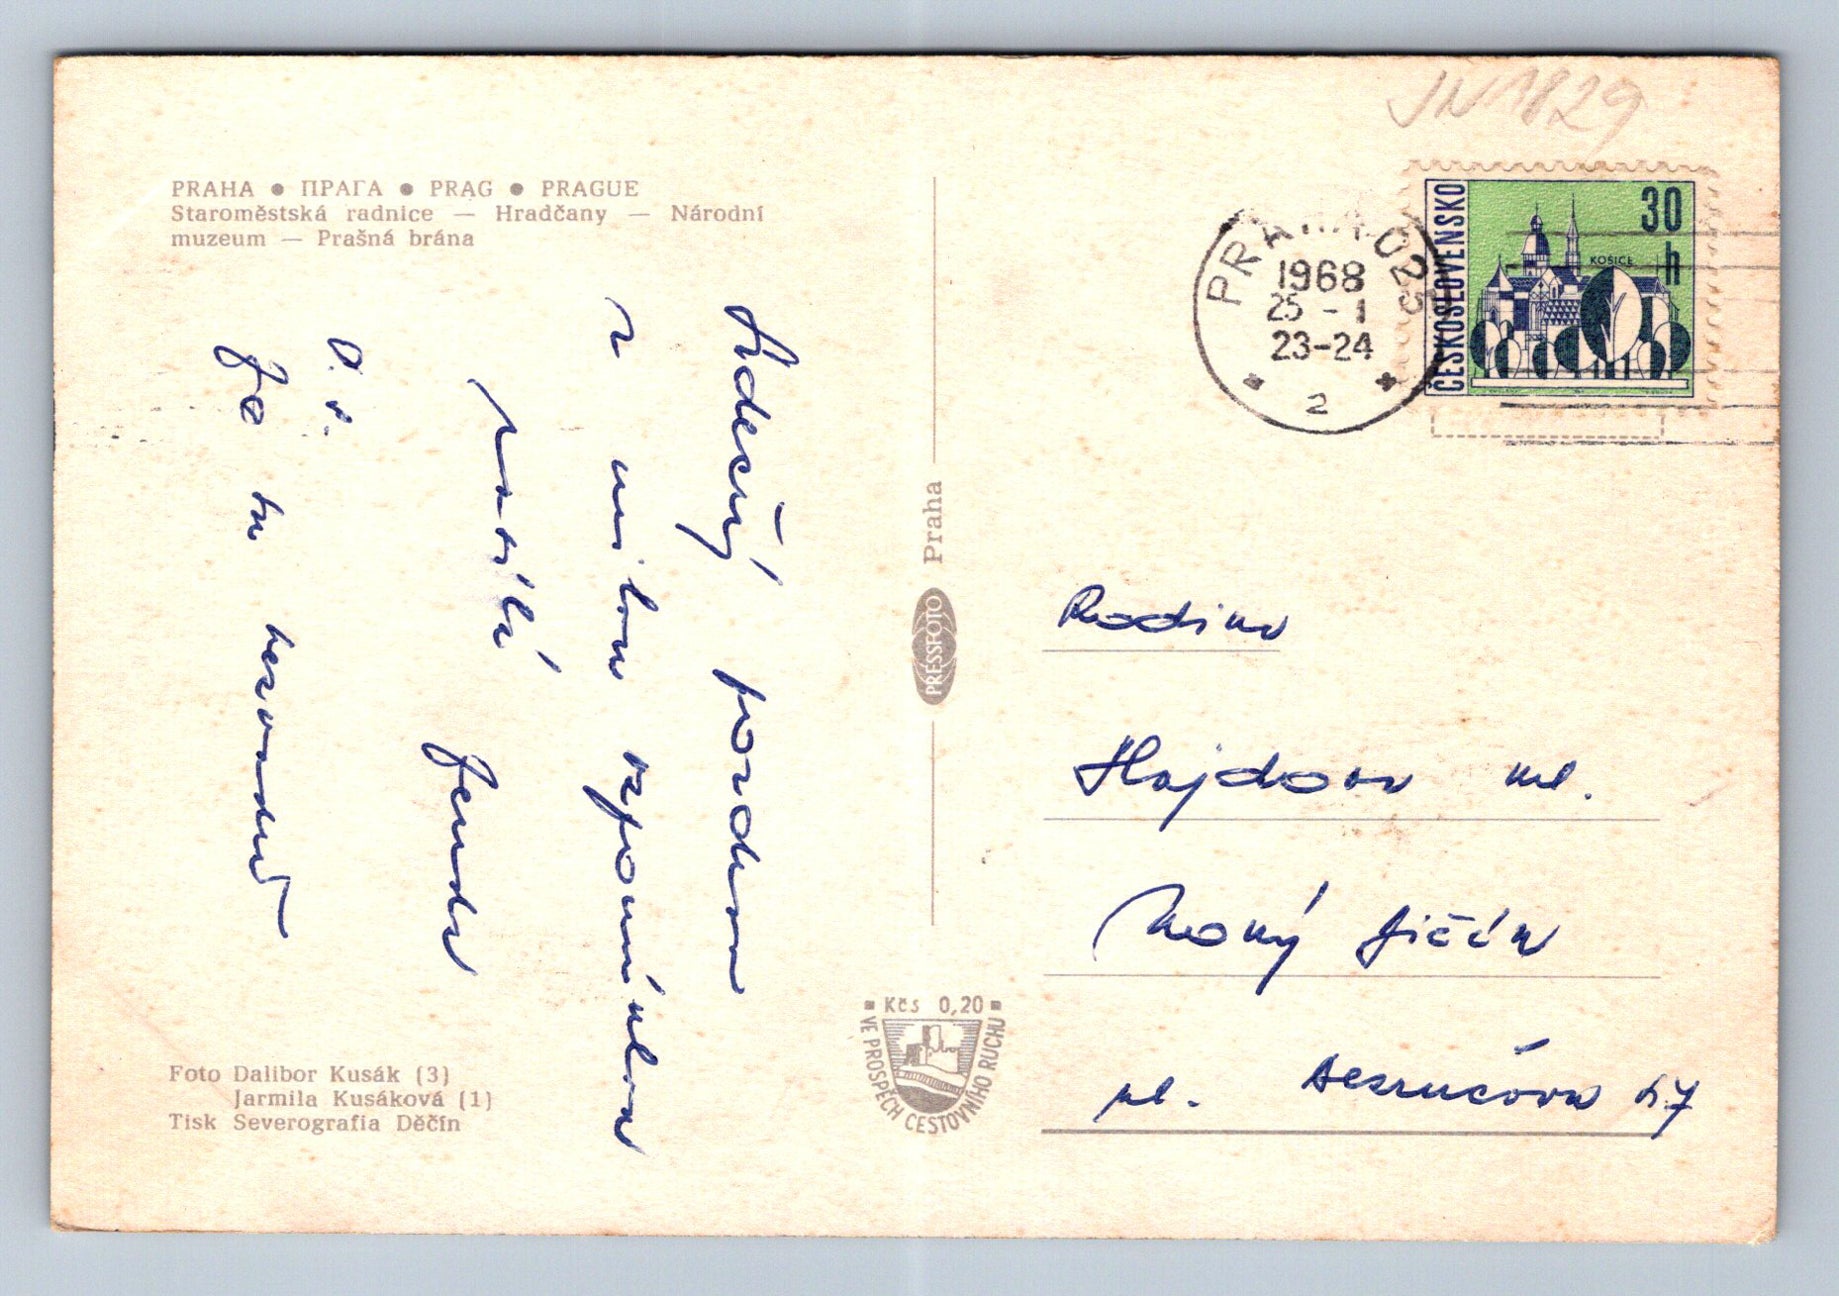 JN 1829
PRAHA ● ПРАГА ● PRAG ● PRAGUE
Staroměstská radnice — Hradčany — Národní
muzeum — Prašná brána
Srdečný pozdrav
s milou vzpomínkou
zasílá
Jenda
P.S.
Je tu
Foto Dalibor Kusák (3)
Jarmila Kusáková (1)
Tisk Severografia Děčín
PRESSFOTO Praha
Kčs 0,20
VE PROSPĚCH CESTOVNÍHO RUCHU
PRAHA 025
1968
25 -1
23-24
2
ČESKOSLOVENSKO
30
h
KOŠICE
Rodina
Hajdova ml.
Nový Jičín
ul. Bezručova č.7